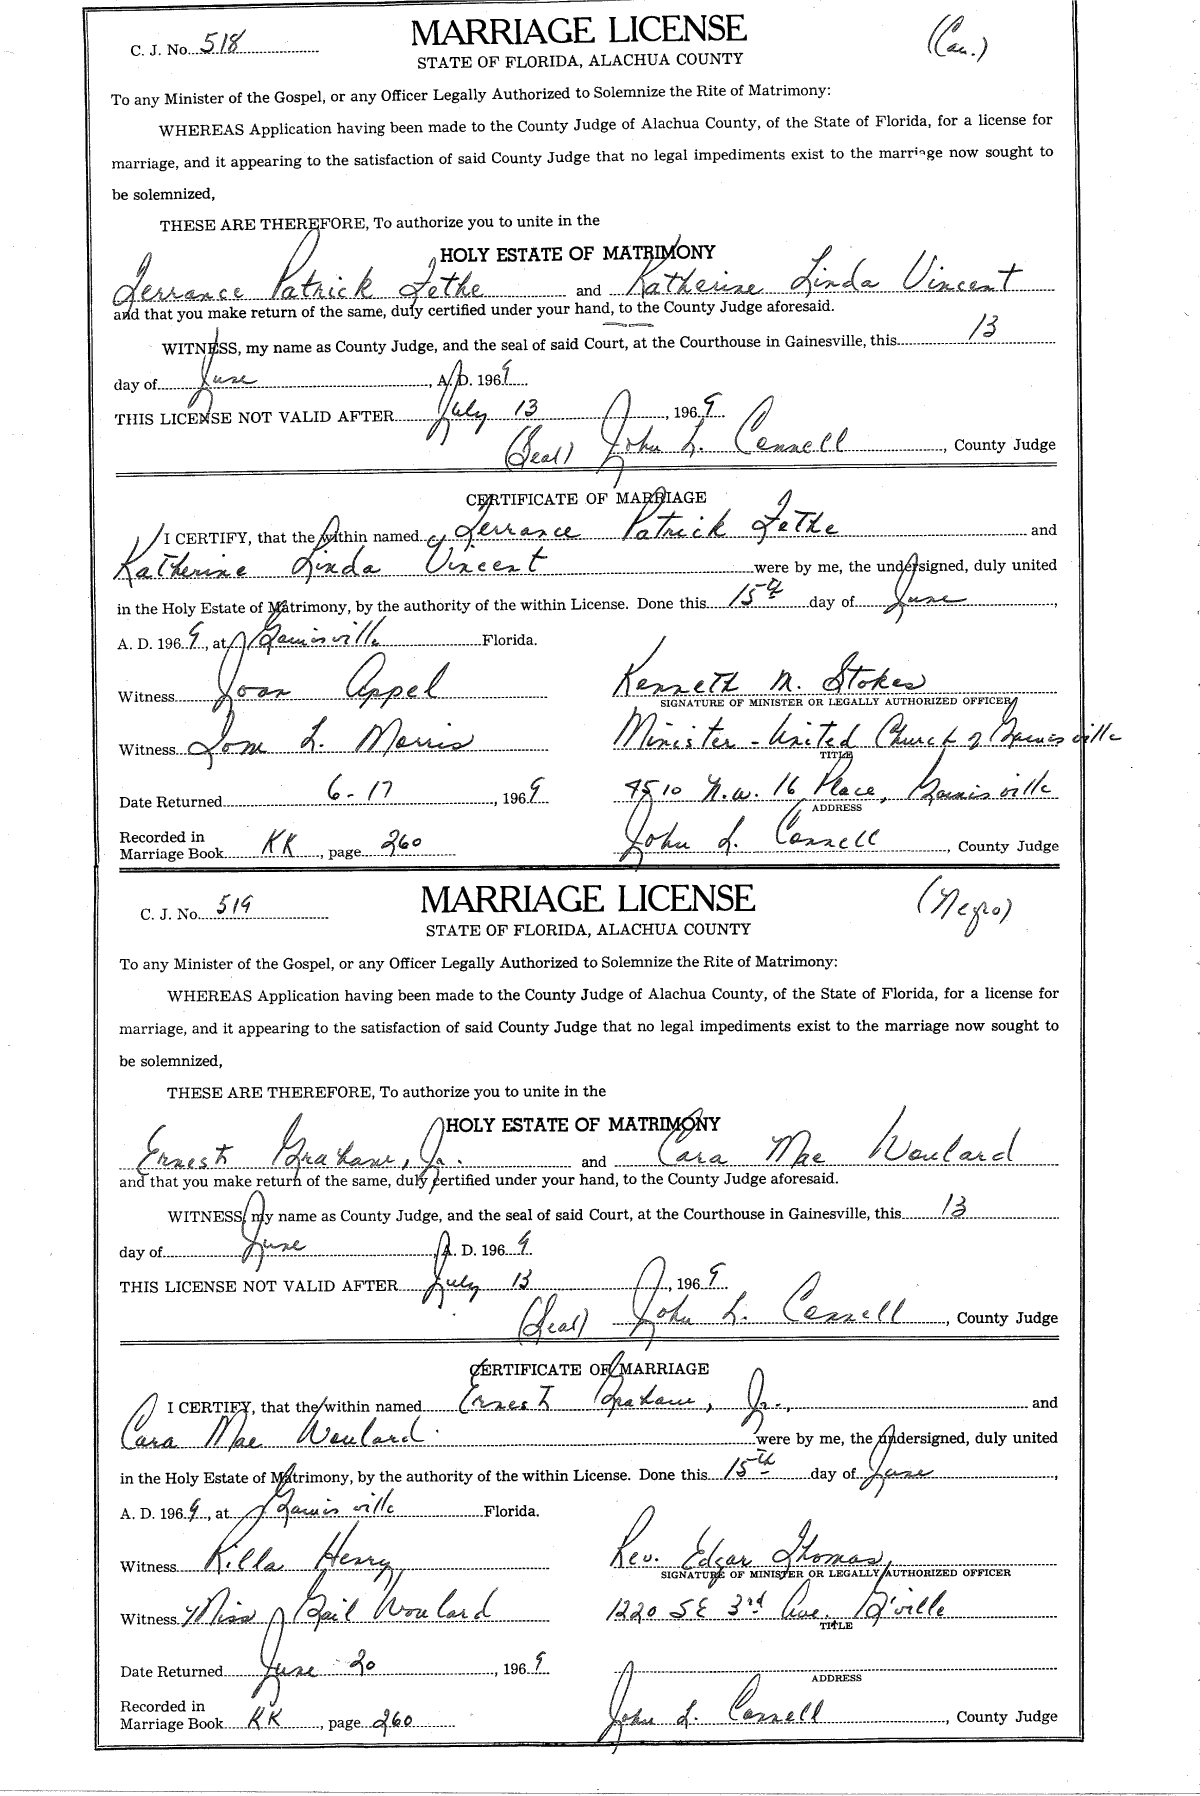 C. J. No. 518
MARRIAGE LICENSE
(Cau.)
STATE OF FLORIDA, ALACHUA COUNTY
To any Minister of the Gospel, or any Officer Legally Authorized to Solemnize the Rite of Matrimony:
WHEREAS Application having been made to the County Judge of Alachua County, of the State of Florida, for a license for
marriage, and it appearing to the satisfaction of said County Judge that no legal impediments exist to the marriage now sought to
be solemnized,
THESE ARE THEREFORE, To authorize you to unite in the
HOLY ESTATE OF MATRIMONY
Terrance Patrick Fethe and Katherine Linda Vincent
and that you make return of the same, duly certified under your hand, to the County Judge aforesaid.
WITNESS, my name as County Judge, and the seal of said Court, at the Courthouse in Gainesville, this 13
day of June, A. D. 1969
THIS LICENSE NOT VALID AFTER July 13, 1969
(Seal) John L. Connell, County Judge
CERTIFICATE OF MARRIAGE
I CERTIFY, that the within named Terrance Patrick Fethe and
Katherine Linda Vincent were by me, the undersigned, duly united
in the Holy Estate of Matrimony, by the authority of the within License. Done this 15th day of June,
A. D. 1969, at Gainisville Florida.
Witness Joan Appel Kenneth M. Stokes
SIGNATURE OF MINISTER OR LEGALLY AUTHORIZED OFFICER
Witness Tom L. Morris Minister - United Church of Gainesville
TITLE
Date Returned 6-17, 1969 4510 N.W. 16 Place, Gainisville
ADDRESS
Recorded in
Marriage Book KK, page 260 John L. Connell, County Judge
C. J. No. 519
MARRIAGE LICENSE
(Negro)
STATE OF FLORIDA, ALACHUA COUNTY
To any Minister of the Gospel, or any Officer Legally Authorized to Solemnize the Rite of Matrimony:
WHEREAS Application having been made to the County Judge of Alachua County, of the State of Florida, for a license for
marriage, and it appearing to the satisfaction of said County Judge that no legal impediments exist to the marriage now sought to
be solemnized,
THESE ARE THEREFORE, To authorize you to unite in the
HOLY ESTATE OF MATRIMONY
Ernest Graham, Jr. and Cara Mae Woulard
and that you make return of the same, duly certified under your hand, to the County Judge aforesaid.
WITNESS, my name as County Judge, and the seal of said Court, at the Courthouse in Gainesville, this 13
day of June A. D. 1969
THIS LICENSE NOT VALID AFTER July 13, 1969
(Seal) John L. Connell, County Judge
CERTIFICATE OF MARRIAGE
I CERTIFY, that the within named Ernest Graham, Jr., and
Cara Mae Woulard were by me, the undersigned, duly united
in the Holy Estate of Matrimony, by the authority of the within License. Done this 15th day of June,
A. D. 1969, at Gainisville Florida.
Witness Rilla Henry Rev. Edgar Thomas,
SIGNATURE OF MINISTER OR LEGALLY AUTHORIZED OFFICER
Witness Miss Gail Woulard 1220 SE 3rd Ave. G'ville
TITLE
Date Returned June 20, 1969
ADDRESS
Recorded in
Marriage Book KK, page 260 John L. Connell, County Judge